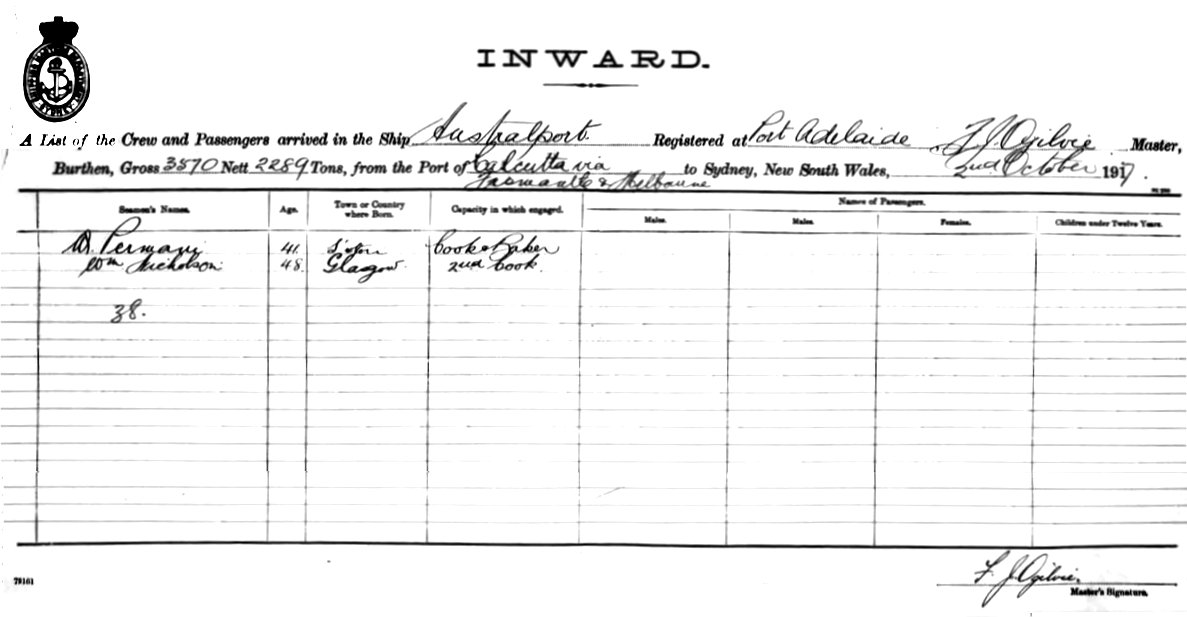 INWARD.
A List of the Crew and Passengers arrived in the Ship Australport. Registered at Port Adelaide F J Ogilvie Master,
Burthen, Gross 3570 Nett 2289 Tons, from the Port of Calcutta via to Sydney, New South Wales, 2nd October 1917.
& Melbourne
Names of Passengers.
Seamen's Names. Age. Town or Country where Born. Capacity in which engaged. Males. Males. Females. Children under Twelve Years.
41. Cook & Baker
Wm Nicholson 48. Glasgow. 2nd Cook.
38.
F. J Ogilvie.
79161 Master's Signature.